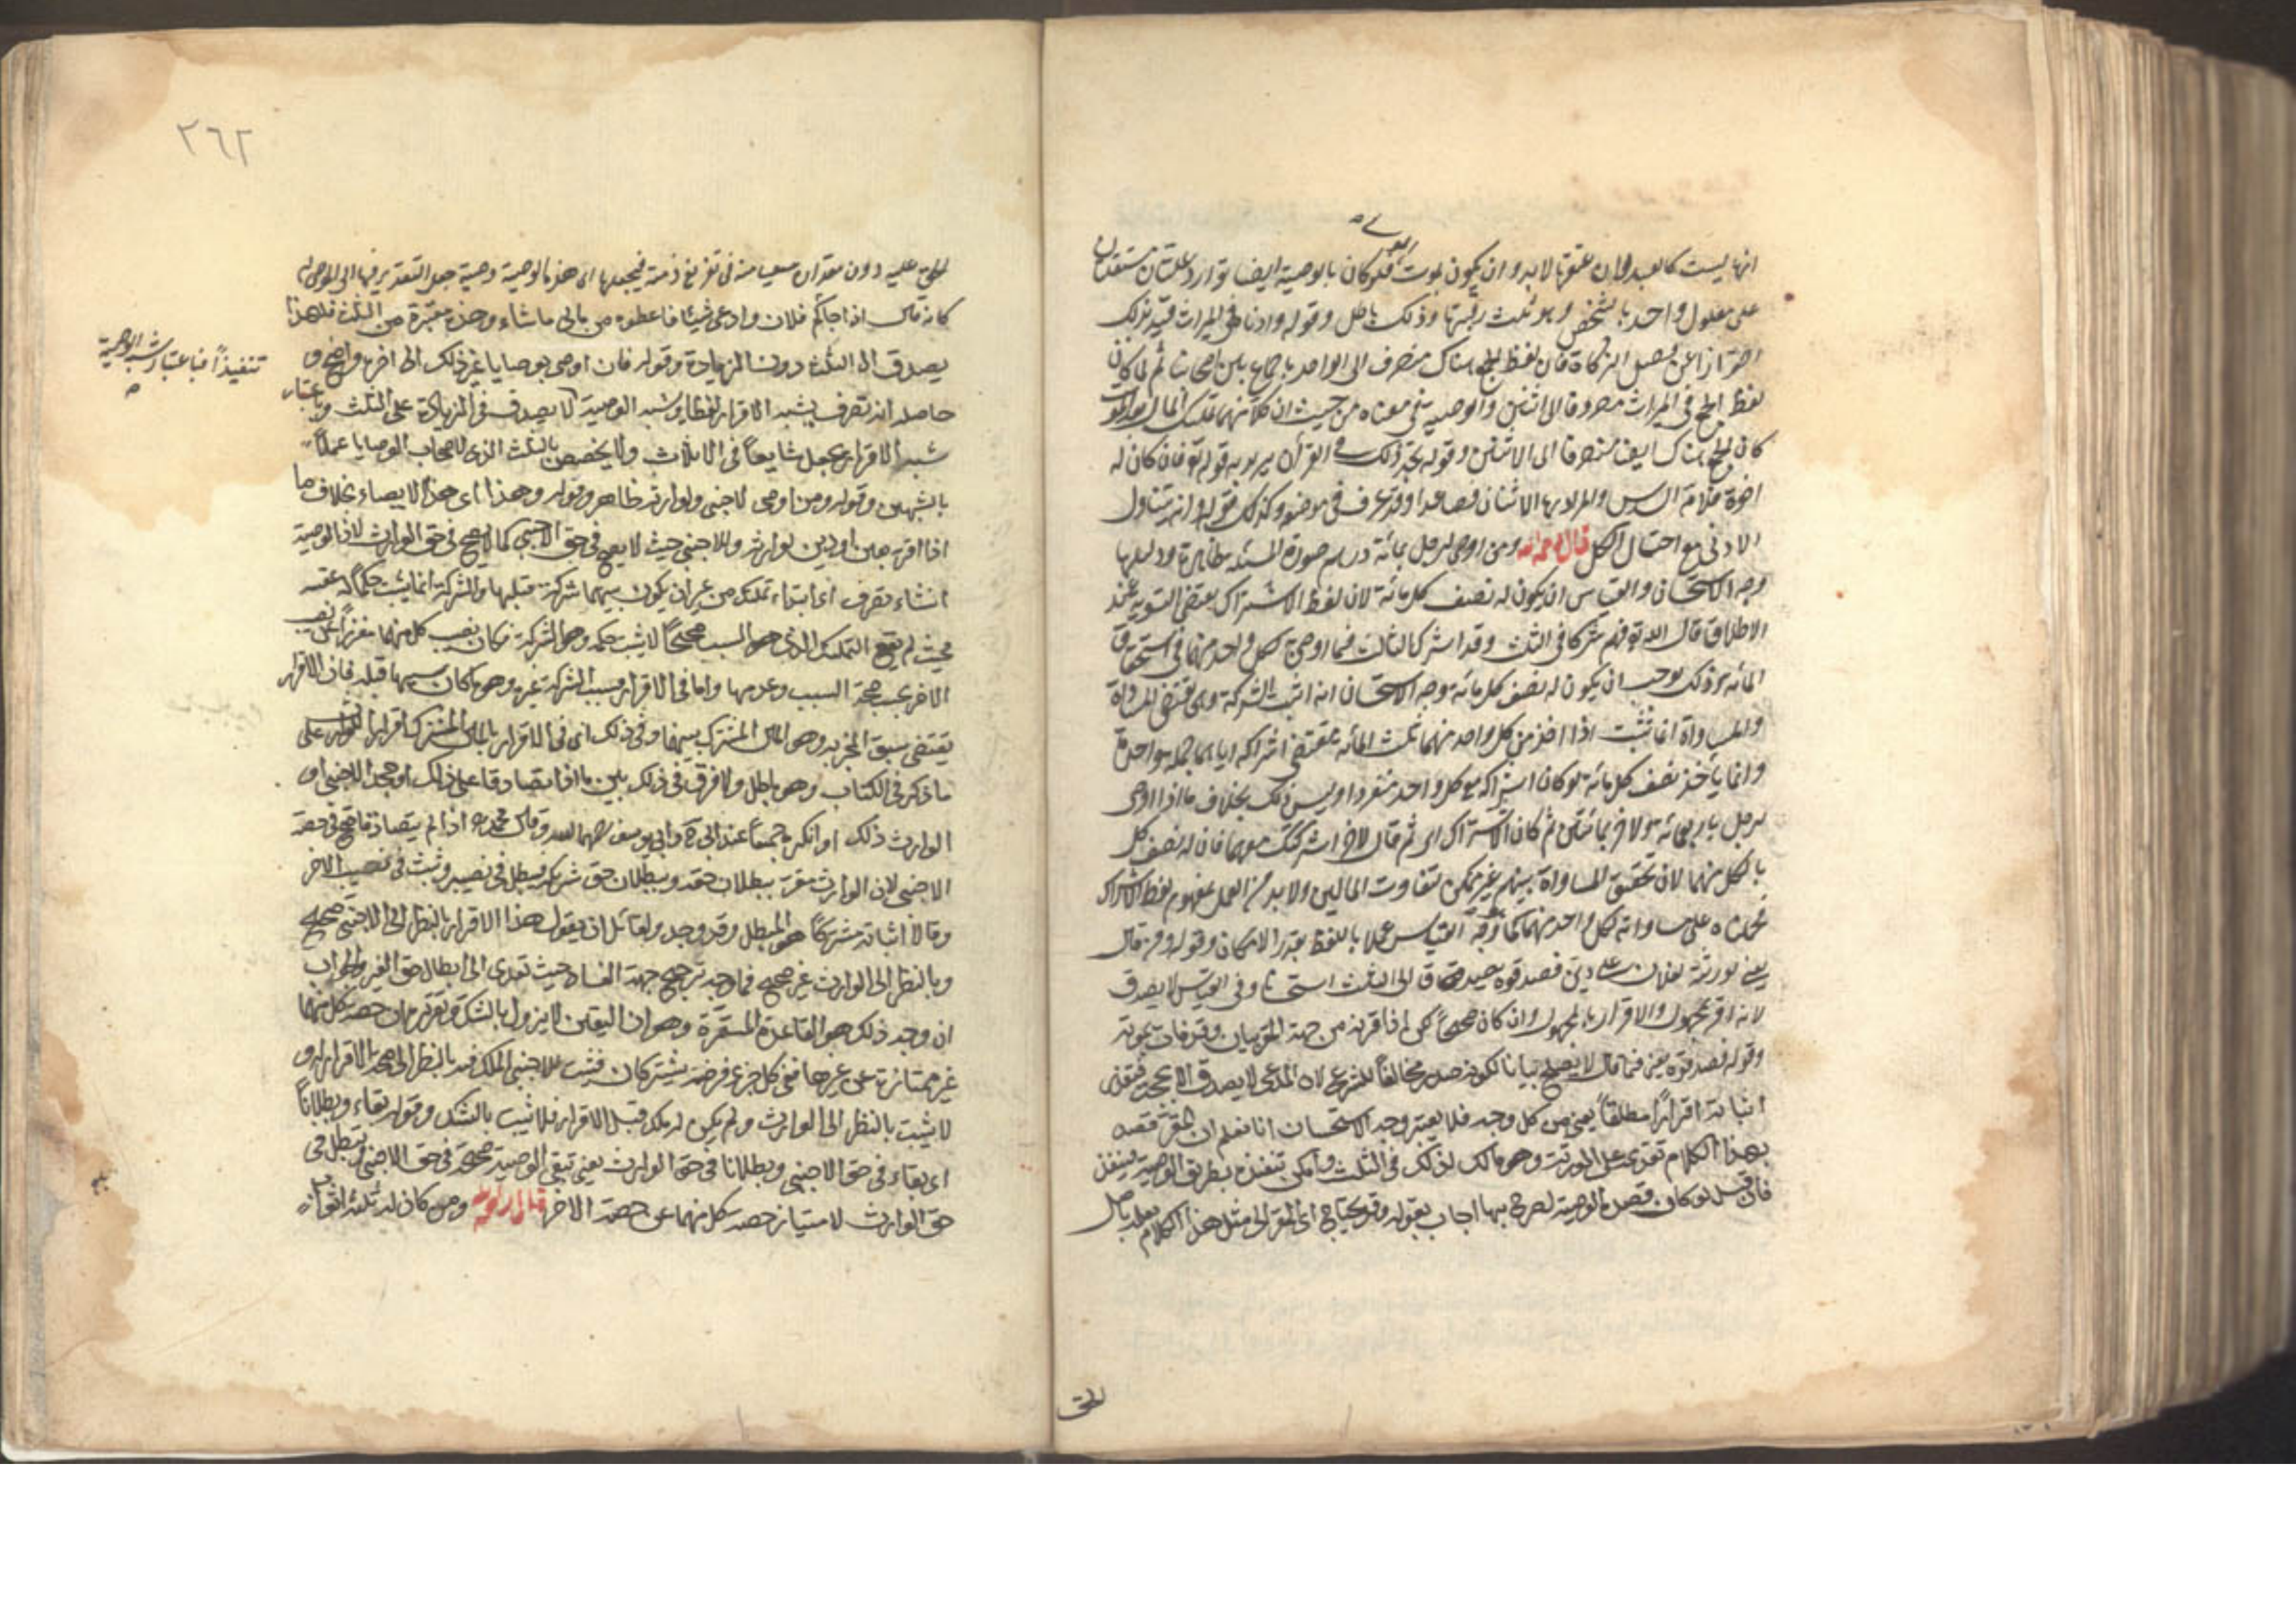 انها ليست كالعبد فان عتقها لابد وان يكون لموت المولى فلو كان بالوصية ايضا توارد علتان مستقلتان
على معلول واحد بالشخص وهو ثلث رقبتها وذلك باطل وقوله وادناه في الميراث قيد بذلك
احترازا عن فصل الزكاة فان لفظ الجمع هناك منصرف الى الواحد باجماع بين اصحابنا ثم لما كان
لفظ الجمع في الميراث مصروفا الى اثنين والوصية في معناه من حيث ان كلا منهما تملك المال بعد الموت
كان الجمع هناك ايضا منصرفا الى الاثنين وقوله نجد ذلك في القرآن يريد به قوله تع فان كان له
اخوة فلامه السدس والمراد بها الاثنان فصاعدا وقد عرف في موضعه وكذلك قوله انه تتناول
الادنى مع احتمال الكل قال رحمه الله ومن اوصى لرجل بمائة درهم صورة المسئلة ظاهرة ودليلها
وجه الاستحسان والقياس ان يكون له نصف كل مائة لان لفظ الاشتراك يقتضى التسوية عند
الاطلاق قال الله تع فهم شركاء في الثلث وقد اشرك الثالث فيما اوصى به لكل واحد منهما في استحقاق
المائة وذلك يوجب ان يكون له نصف كل مائة وجه الاستحسان انه اثبت الشركة وهى تقتضى المساواة
والمساواة انما تثبت اذا اخذ من كل واحد منهما ثلث المائة بمقتضى اشراكه اياهما جملة واحدة
وانما ياخذ نصف كل مائة لو كان اشراكه مع كل واحد منفردا وليس ذلك بخلاف ما اذا اوصى
لرجل باربعمائة ولاخر بمائتين ثم كان الاشتراك اى ثم قال لاخر اشركتك معهما فان له نصف كل
ما لكل منهما لان تحقيق المساواة بينهم غير ممكن لتفاوت المالين ولا بد من العمل بمفهوم لفظ الاشراك
فحملناه على مساواته لكل واحد منهما كما وجه القياس عملا باللفظ بقدر الامكان وقوله ومن قال
يعنى لورثته لفلان على دين فصدقوه يصدق الى الثلث استحسانا وفى القياس لا يصدق
لانه اقر بمجهول والاقرار بالمجهول وان كان صحيحا لكن اذا اقترنه من جهة المقر بيان وقد فات بموته
وقوله فصدقوه يعنى فيما قال لا يصلح بيانا لكونه صدر مخالفا للشرع لان المدعى لا يصدق الا بحجة فتعذر
اثباته اقرارا مطلقا يعنى من كل وجه فلا يعتبر وجه الاستحسان انا نعلم ان المقر قصده
بهذا الكلام تقديمه على الورثة وهو مالك لذلك في الثلث وامكن تنفيذه بطريق الوصية فينفذ
فان قيل لو كان قصده الوصية لصرح بها اجاب بقوله وقد يحتاج اى المقر الى مثل هذا الكلام يعلم باصل
الحق
٢٦٢
الحق عليه دون مقداره سعيا منه في تفريغ ذمته فيجعلها اى هذه الوصية وصية جعل التقدير فيها الى الموصى له
كانه قال اذا جاكم فلان وادعى شيئا فاعطوه من مالى ما شاء وهذه معتبرة من الثلث فلهذا
يصدق الى الثلث دون الزيادة وقوله فان اوصى بوصايا غير ذلك الى اخره واضح و
حاصله انه تصرف يشبه الاقرار لفظا ويشبه الوصية تنفيذا فباعتبار شبه الوصية لا يصدق في الزيادة على الثلث وباعتبار
شبه الاقرار يجعل شايعا في الاثلاث ولا يخصص بالثلث الذى لاصحاب الوصايا عملا
بالشبهين وقوله ومن اوصى لاجنبى ولوارثه ظاهر وقوله وهذا اى هذا الايصاء بخلاف ما
اذا اقر بعين او دين لوارثه وللاجنبى حيث لا يصح في حق الاجنبى كما لا يصح في حق الوارث لان الوصية
انشاء تصرف اى ابتداء تمليك من غير ان يكون بينهما شركة قبلها والشركة انما يثبت حكما له عقيبه
بحيث لم يقع التمليك والذى هو السبب صحيحا لا يثبت حكمه وهو الشركة فكان نصيب كل منهما مفرزا عن نصيب
الاخر بحسب صحة السبب وعدمها واما في الاقرار فسبب الشركة غيره وهو ما كان بينهما قبله فان الاقرار
يقتضى سبق المخبر به وهو المال المشترك بينهما وفى ذلك اى في الاقرار بالمال المشترك اقرار للوارث على
ما ذكر في الكتاب وهو باطل ولا فرق في ذلك بين ما اذا تصادقا على ذلك او جحد الاجنبى او
الوارث ذلك او انكراه جميعا عند ابى ح وابى يوسف رحمهما الله وقال محمد ره اذا لم يتصادقا صح في حصة
الاجنبى لان الوارث مقر ببطلان حقه وببطلان حق شريكه فيبطل في نصيبه وثبت في نصيب الاخر
وقالا اثباته مشتركا هو المبطل وقد وجد ولقائل ان يقول هذا الاقرار بالنظر الى الاجنبى صحيح
وبالنظر الى الوارث غير صحيح فما وجه ترجيح جهة الفساد حيث تعدى الى ابطال حق الغير والجواب
ان وجه ذلك هو القاعدة المستقرة وهو ان اليقين لا يزول بالشك وتقريره ان حصة كل منهما
غير ممتازة عن غيرها ففى كل جزء فرضته يشتركان فيثبت للاجنبى الملك فيه بالنظر الى صحة الاقرار له و
لا يثبت بالنظر الى الوارث ولم يكن له ملك قبل الاقرار فلا يثبت بالشك وقوله بقاء وبطلانا
اى بقاء في حق الاجنبى وبطلانا في حق الوارث يعنى تبقى الوصية صحيحة في حق الاجنبى وتبطل في
حق الوارث لامتياز حصة كل منهما عن حصة الاخر قال رحمه الله ومن كان له ثلثة اثواب
تنفيذا فباعتبار شبه الوصية